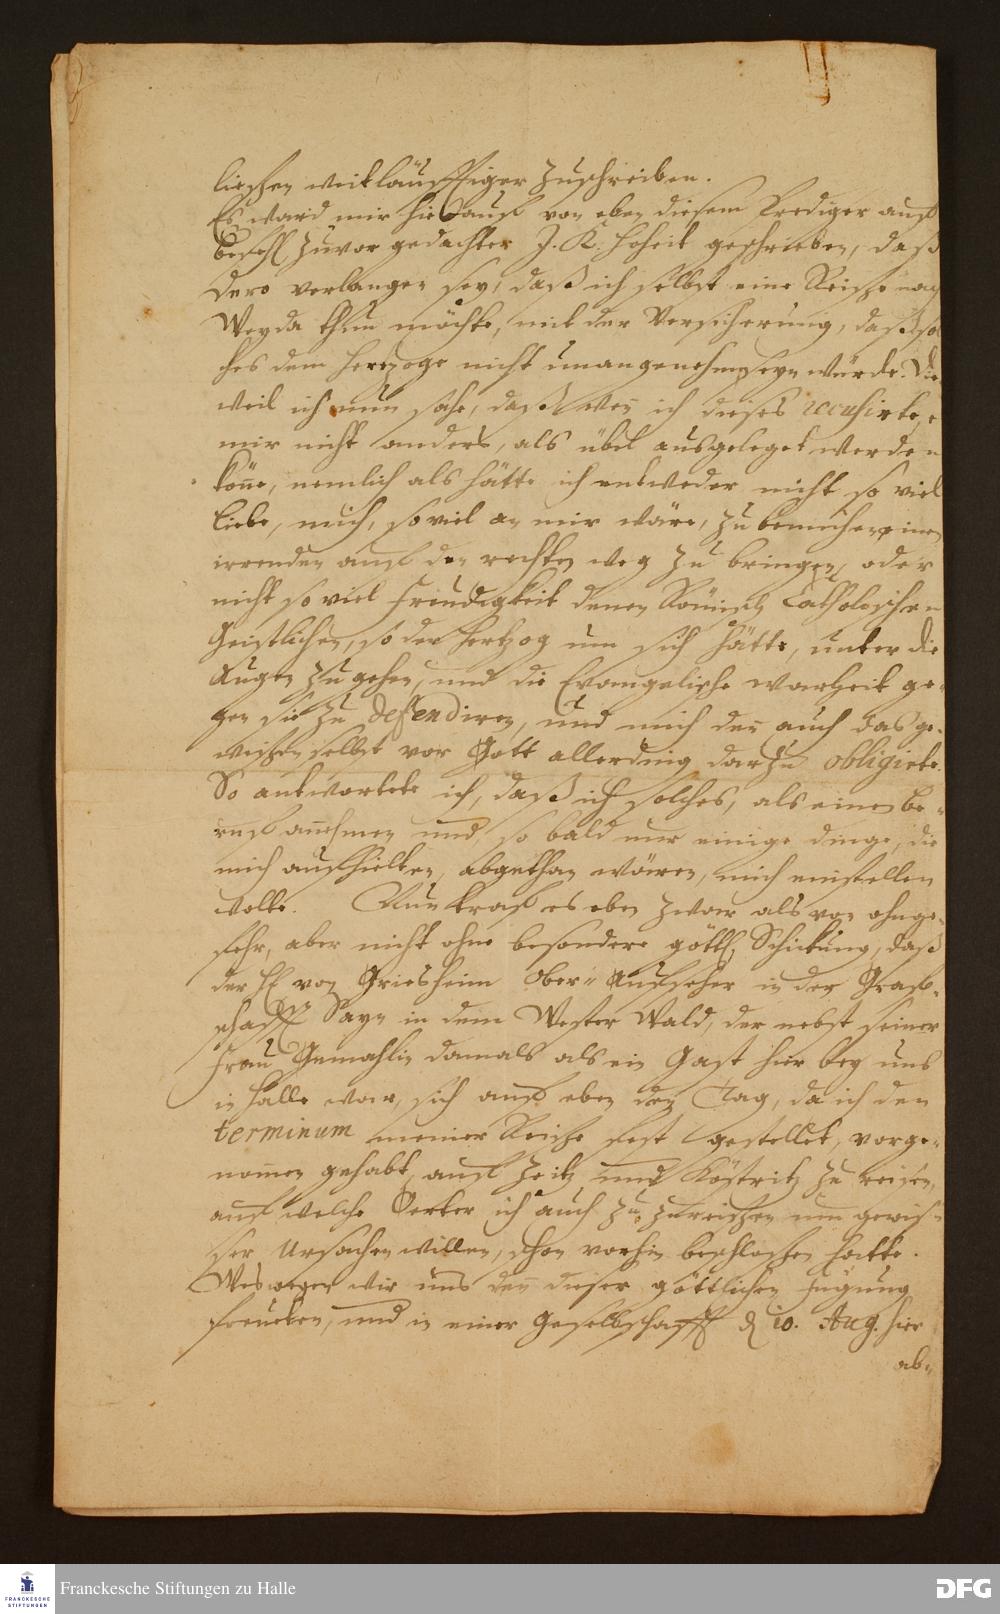 lichen weitläufftiger zuschreiben.
Es ward mir hierauf von eben diesem Prediger auf
befehl zuvor gedachter J. K. Hoheit geschrieben, daß
dero verlangen sey, daß ich selbst eine Reise nach
Weyda thun möchte, mit der Versicherung, daß sol
ches dem Hertzoge nicht unangenehm seyn würde. Die-
weil ich nun sahe, daß weñ ich dieses recusirte, e
mir nicht anders, als übel ausgeleget werden
köñe, nemlich als hätte ich entweder nicht so viel
Liebe, mich, so viel an mir wäre, zu bemühen einen
irrenden auf den rechten weg zu bringen, oder
nicht so viel Freudigkeit denen Römisch Catholischen
Geistlichen, so der Hertzog um sich hätte, unter die
Augen zu gehen, und die Evangelische warheit ge-
gen sie zu defendiren, und mich deñ auch das ge-
wissen selbst vor Gott allerding darzu obligirte.
So antwortete ich, daß ich solches, als einen be-
ruf añehmen und, so bald nur einige dinge, die
mich aufhielten, abgethan wären, mich einstellen
wolte. Nun traf es eben zwar als von ohnge-
fehr, aber nicht ohne besondere göttl. Schickung, daß
der H. von Griesheim Ober-Aufseher in der Graf-
schafft Sayn in dem Wester Wald, der nebst seiner
Frau Gemahlin damals als ein Gast hier bey uns
in Halle war, sich auf eben den Tag, da ich den
terminum meiner Reise fest gestellet, vorge-
nom̃en gehabt auf Zeitz und Köstritz zu reisen,
auf welche Oerter ich auch zu zureisen um gewis-
ser Ursachen willen, schon vorhin beschlossen hatte.
Weswegen wir uns deñ dieser göttlichen Fügung
freueten, und in einer Gesellschafft d. 10. Aug. hier
ab-
Franckesche Stiftungen zu Halle
FRANCKESCHE
STIFTUNGEN
DFG